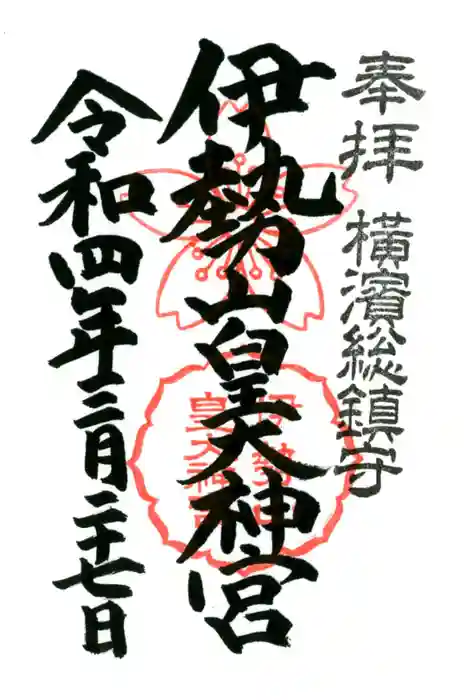 奉拝 横濱総鎮守
伊勢山皇大神宮
令和四年三月二十七日
伊勢山
皇大神宮